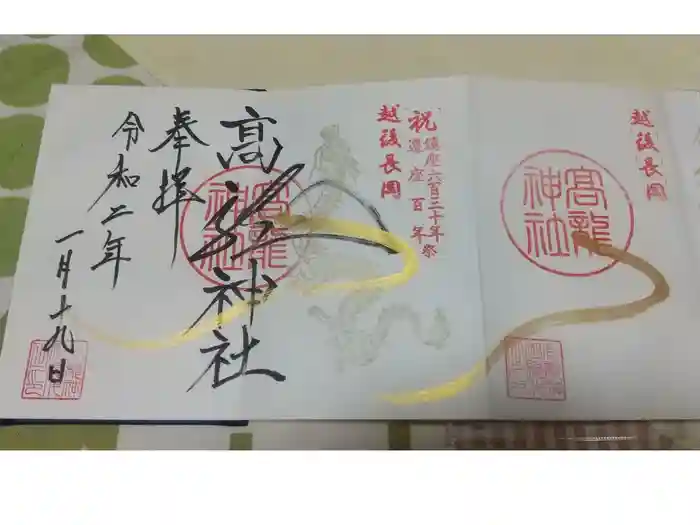 越後長岡
高龍
神社
越後長岡
祝
鎮座六百三十年祭
遷座百年
高龍神社
高龍
神社
奉拝
令和二年
一月十九日